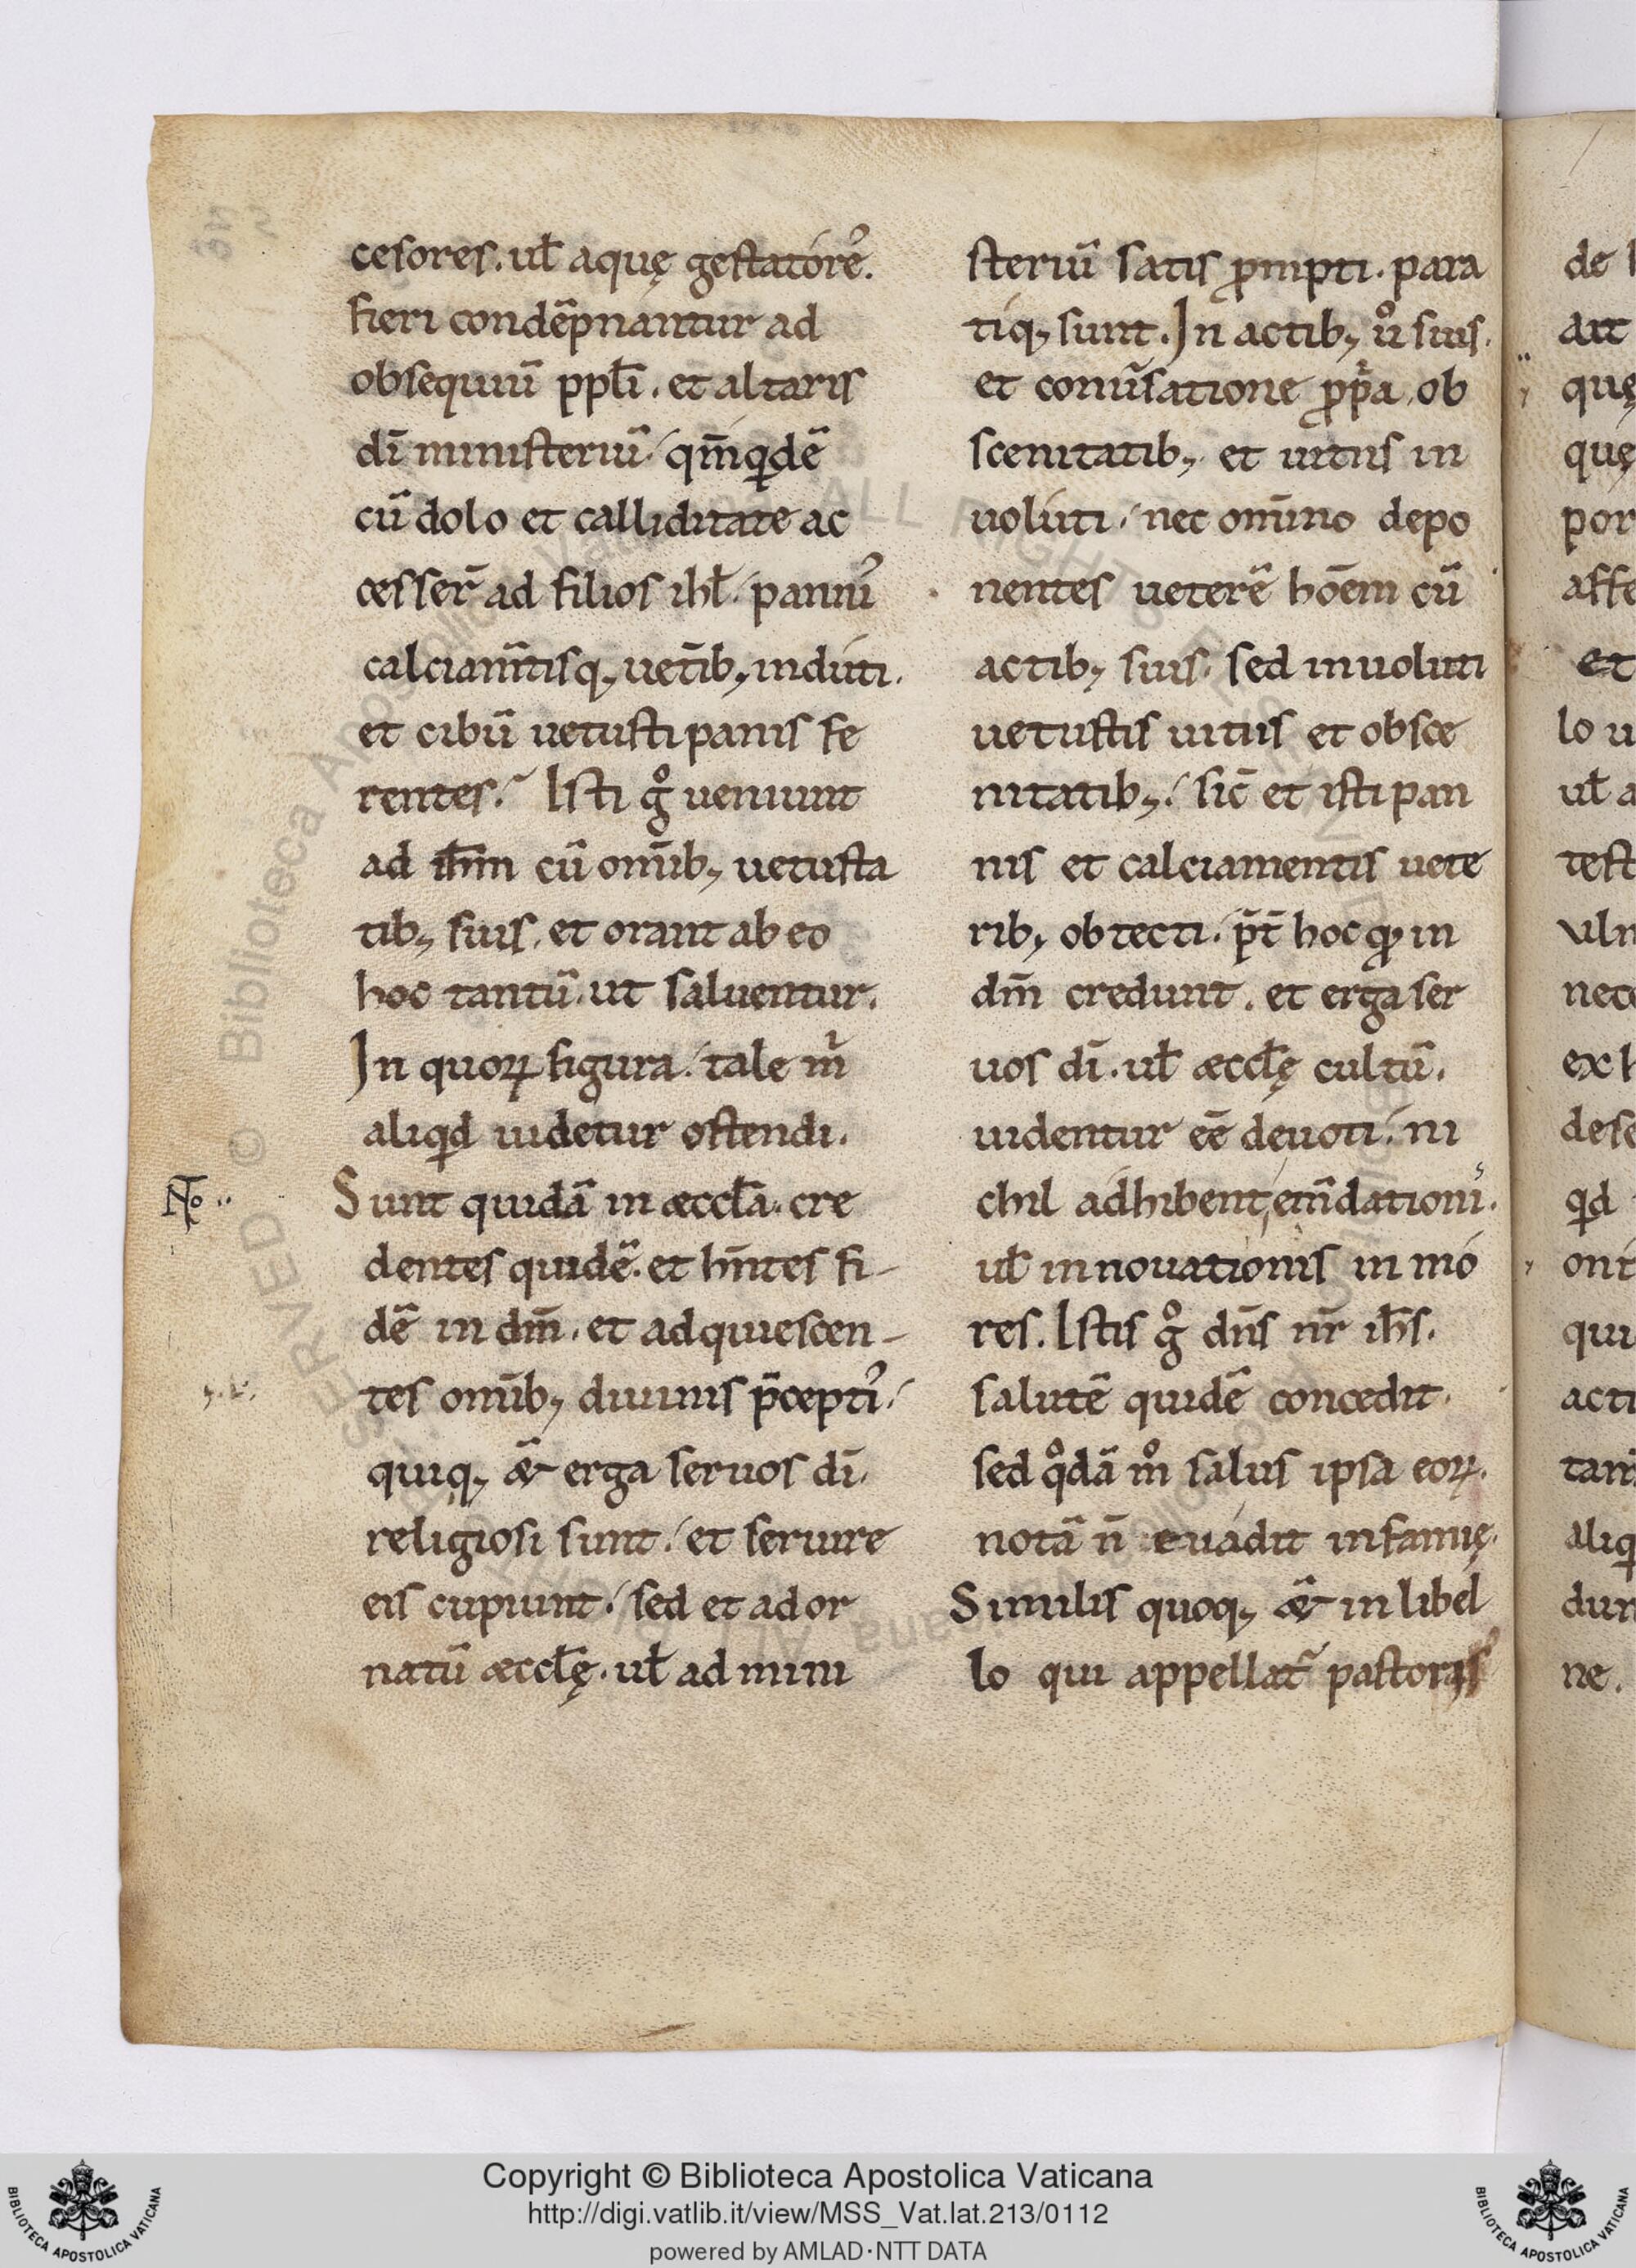 cesores. ul̄ aquę gestatore᷒.
fieri condēpnantur ad
obsequiū ppl̄i. et altaris
dī ministeriū. qm̄qͥdē
cū dolo et calliditate ac
cesser̄ ad filios ihl̄. panni᷒
calciam̄tisq; uet̄ib; induti.
et cibū uetusti panis fe
rentes. Isti gͦ ueniunt
ad ih̄m cū om̄ib; uetusta
tib; suis. et orant ab eo
hoc tantū. ut saluentur.
In quoꝝ figura. tale mͥ
aliqͥd uidetur ostendi.
Sunt quidā in æccl̄a. cre
dentes quidē. et hn̄tes fi-
dē in dm̄. et adquiescen-
tes om̄ib; diuinis p̄cepti᷒.
quiq; & erga seruos dī.
religiosi sunt. et seruire
eis cupiunt. sed et ad or
natū æccl̄ę. ul̄ ad mini
steriū satis ꝓmpti. para
tiq; sunt. In actib; uͦ suis.
et conuˉsatione ꝓpͥa. ob
scenitatib; et uitiis in
uoluti. nec om̄ino depo
nentes ueterē hōem cū
actib; suis. sed inuoluti
uetustis uitiis et obsce
nitatib;. sic̄ et isti pan
nis et calciamentis uete
rib; obtecti. p̄t̄ hoc qͥ in
dm̄ credunt. et erga ser
uos dī. ul̄ æccl̄ę cultū.
uidentur eē deuoti. ni
chil adhibent em̄dationis.
ul̄ innouationis in mo
res. Istis gͦ dn̄s nr̄ ih̄s.
salutē quidē concedit.
sed qͦdā mͦ salus ipsa eoꝝ.
notā n̄ euadit infamię.
Similis quoq; & in libel
lo qui appellat᷒ pastoris
No
de
ait
quę
quę
por
affe
et
lo u
ul̄ a
test
uln
nec
ex h
dese
qͥd
oni
qui
acti
tam
aliq
dun
ne.
© Biblioteca Apostolica Vaticana ALL RIGHTS RESERVED
Copyright © Biblioteca Apostolica Vaticana
http://digi.vatlib.it/view/MSS_Vat.lat.213/0112
powered by AMLAD·NTT DATA
BIBLIOTECA APOSTOLICA VATICANA
BIBLIOTECA APOSTOLICA VATICANA